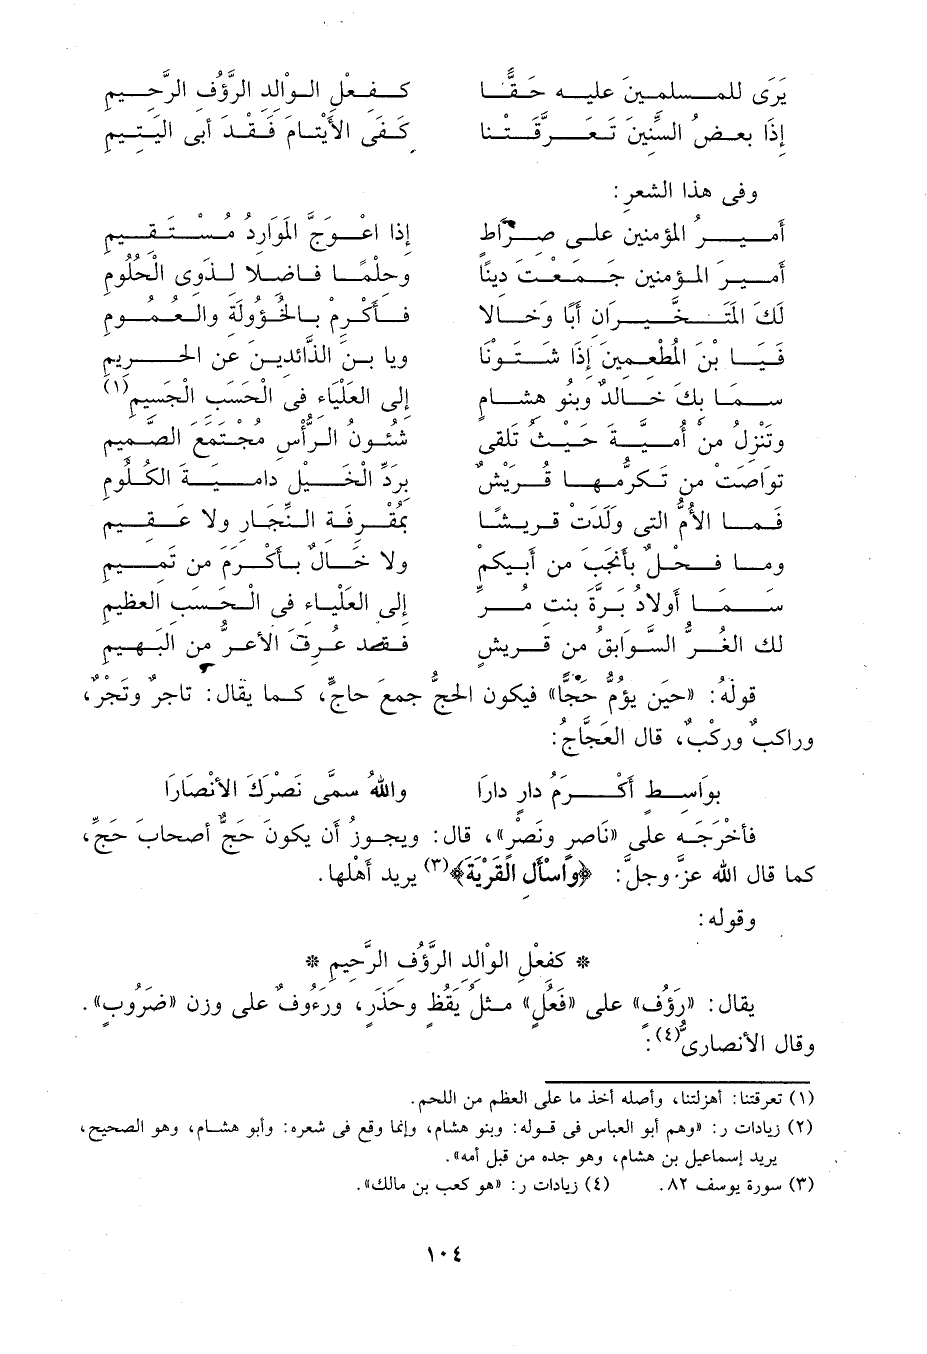 يَرَى للمسلمينَ عليه حَقًّا كفعْلِ الوالدِ الرَّؤُفِ الرَّحيمِ
إذَا بعضُ السِّنينَ تَعَرقَتْنا كَفَى الأَيْتامَ فَقْدَ أبى اليَتيمِ
وفى هذا الشعر:
أميرُ المؤمنين على صِرَاطٍ إذا اعْوَجَّ المَوارِدُ مُسْتَقِيمِ
أميرَ المؤمنين جَمَعْتَ دينًا وحِلْمًا فاضلا لذوى الحُلُومِ
لَكَ المُتَخَيَّرانِ أبًا وخَالا فأكْرِمْ بالخُؤُولَةِ والعُمُومِ
فَيَا بْنَ المُطعِمِينَ إذَا شَتَوْنَا ويا بنَ الذَّائدينَ عن الحَريمِ
سمَا بكَ خالدٌ وبنُو هشامٍ إلى العَلْيَاءِ فى الحَسَبِ الجَسِيمِ(١)
وتَنزِلُ من أُمَيَّةَ حيثُ تَلْقَى شُئونُ الرَّأْسِ مجْتَمَعَ الصَّميمِ
توَاصَتْ من تكرُّمِها قُرَيشٌ بِرَدِّ الخَيْلِ داميَةَ الكُلُومِ
فَما الأُمُّ التى وَلَدَتْ قريشًا بمُقْرِفَةِ النِّجَارِ ولا عَقِيمِ
وما فَحْلٌ بأَنْجَبَ من أبيكم ولا خَالٌ بأكْرَمَ من تَميمِ
سَما أولادُ بَرَّةَ بنتِ مُرٍّ إلى العَلْيَاءِ فى الحَسَبِ العظيمِ
لك الغُرُّ السَّوابقُ من قُرَيشٍ فقد عُرِفَ الأغرُّ من البَهيمِ
قولُه: «حين يؤمُّ حُجًّا» فيكون الحجُّ جمعَ حاجٍّ، كما يقال: تاجرٌ وتَجْرٌ،
وراكبٌ وركْبٌ، قال العَجَّاجُ:
بوَاسِطٍ أكْرَمُ دارٍ دارَا واللهُ سمَّى نَصْرَكَ الأنْصَارَا
فأخْرَجَه على «نَاصرٍ ونَصْرٍ»، قال: ويجوزُ أن يكونَ حَجٌّ أصحابَ حَجٍّ،
كما قال الله عزَّ وجلَّ: ﴿وَاسْأَلِ الْقَرْيَةَ﴾(٣) يريد أهْلَها.
وقوله:
* كفعْلِ الوالدِ الرَّؤُفِ الرَّحيمِ *
يقال: «رَؤُف» على «فَعُلٍ» مثلُ يَقُظٍ وحَذُرٍ، ورَءُوفٌ على وزن «ضَرُوبٍ».
وقال الأنصارىُّ(٤):
(١) تعرقتنا: أهزلتنا، وأصله أخذ ما على العظم من اللحم.
(٢) زيادات ر: «وهم أبو العباس فى قوله: وبنو هشام، وإنما وقع فى شعره: وأبو هشام، وهو الصحيح،
يريد إسماعيل بن هشام، وهو جده من قبل أمه».
(٣) سورة يوسف ٨٢. (٤) زيادات ر: «هو كعب بن مالك».
١٠٤